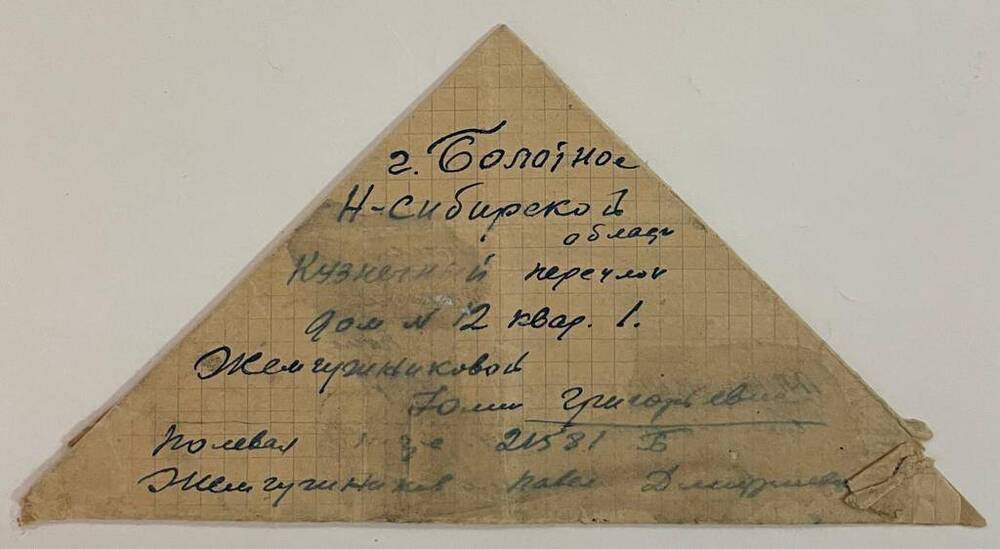 г. Болотное
Н-Сибирской
области
Кузнечный переулок
дом № 12 квар. 1.
Жемчужниковой
Юлии Григорьевне
Полевая 21581 Б
Жемчужников Павел Дмитриевич